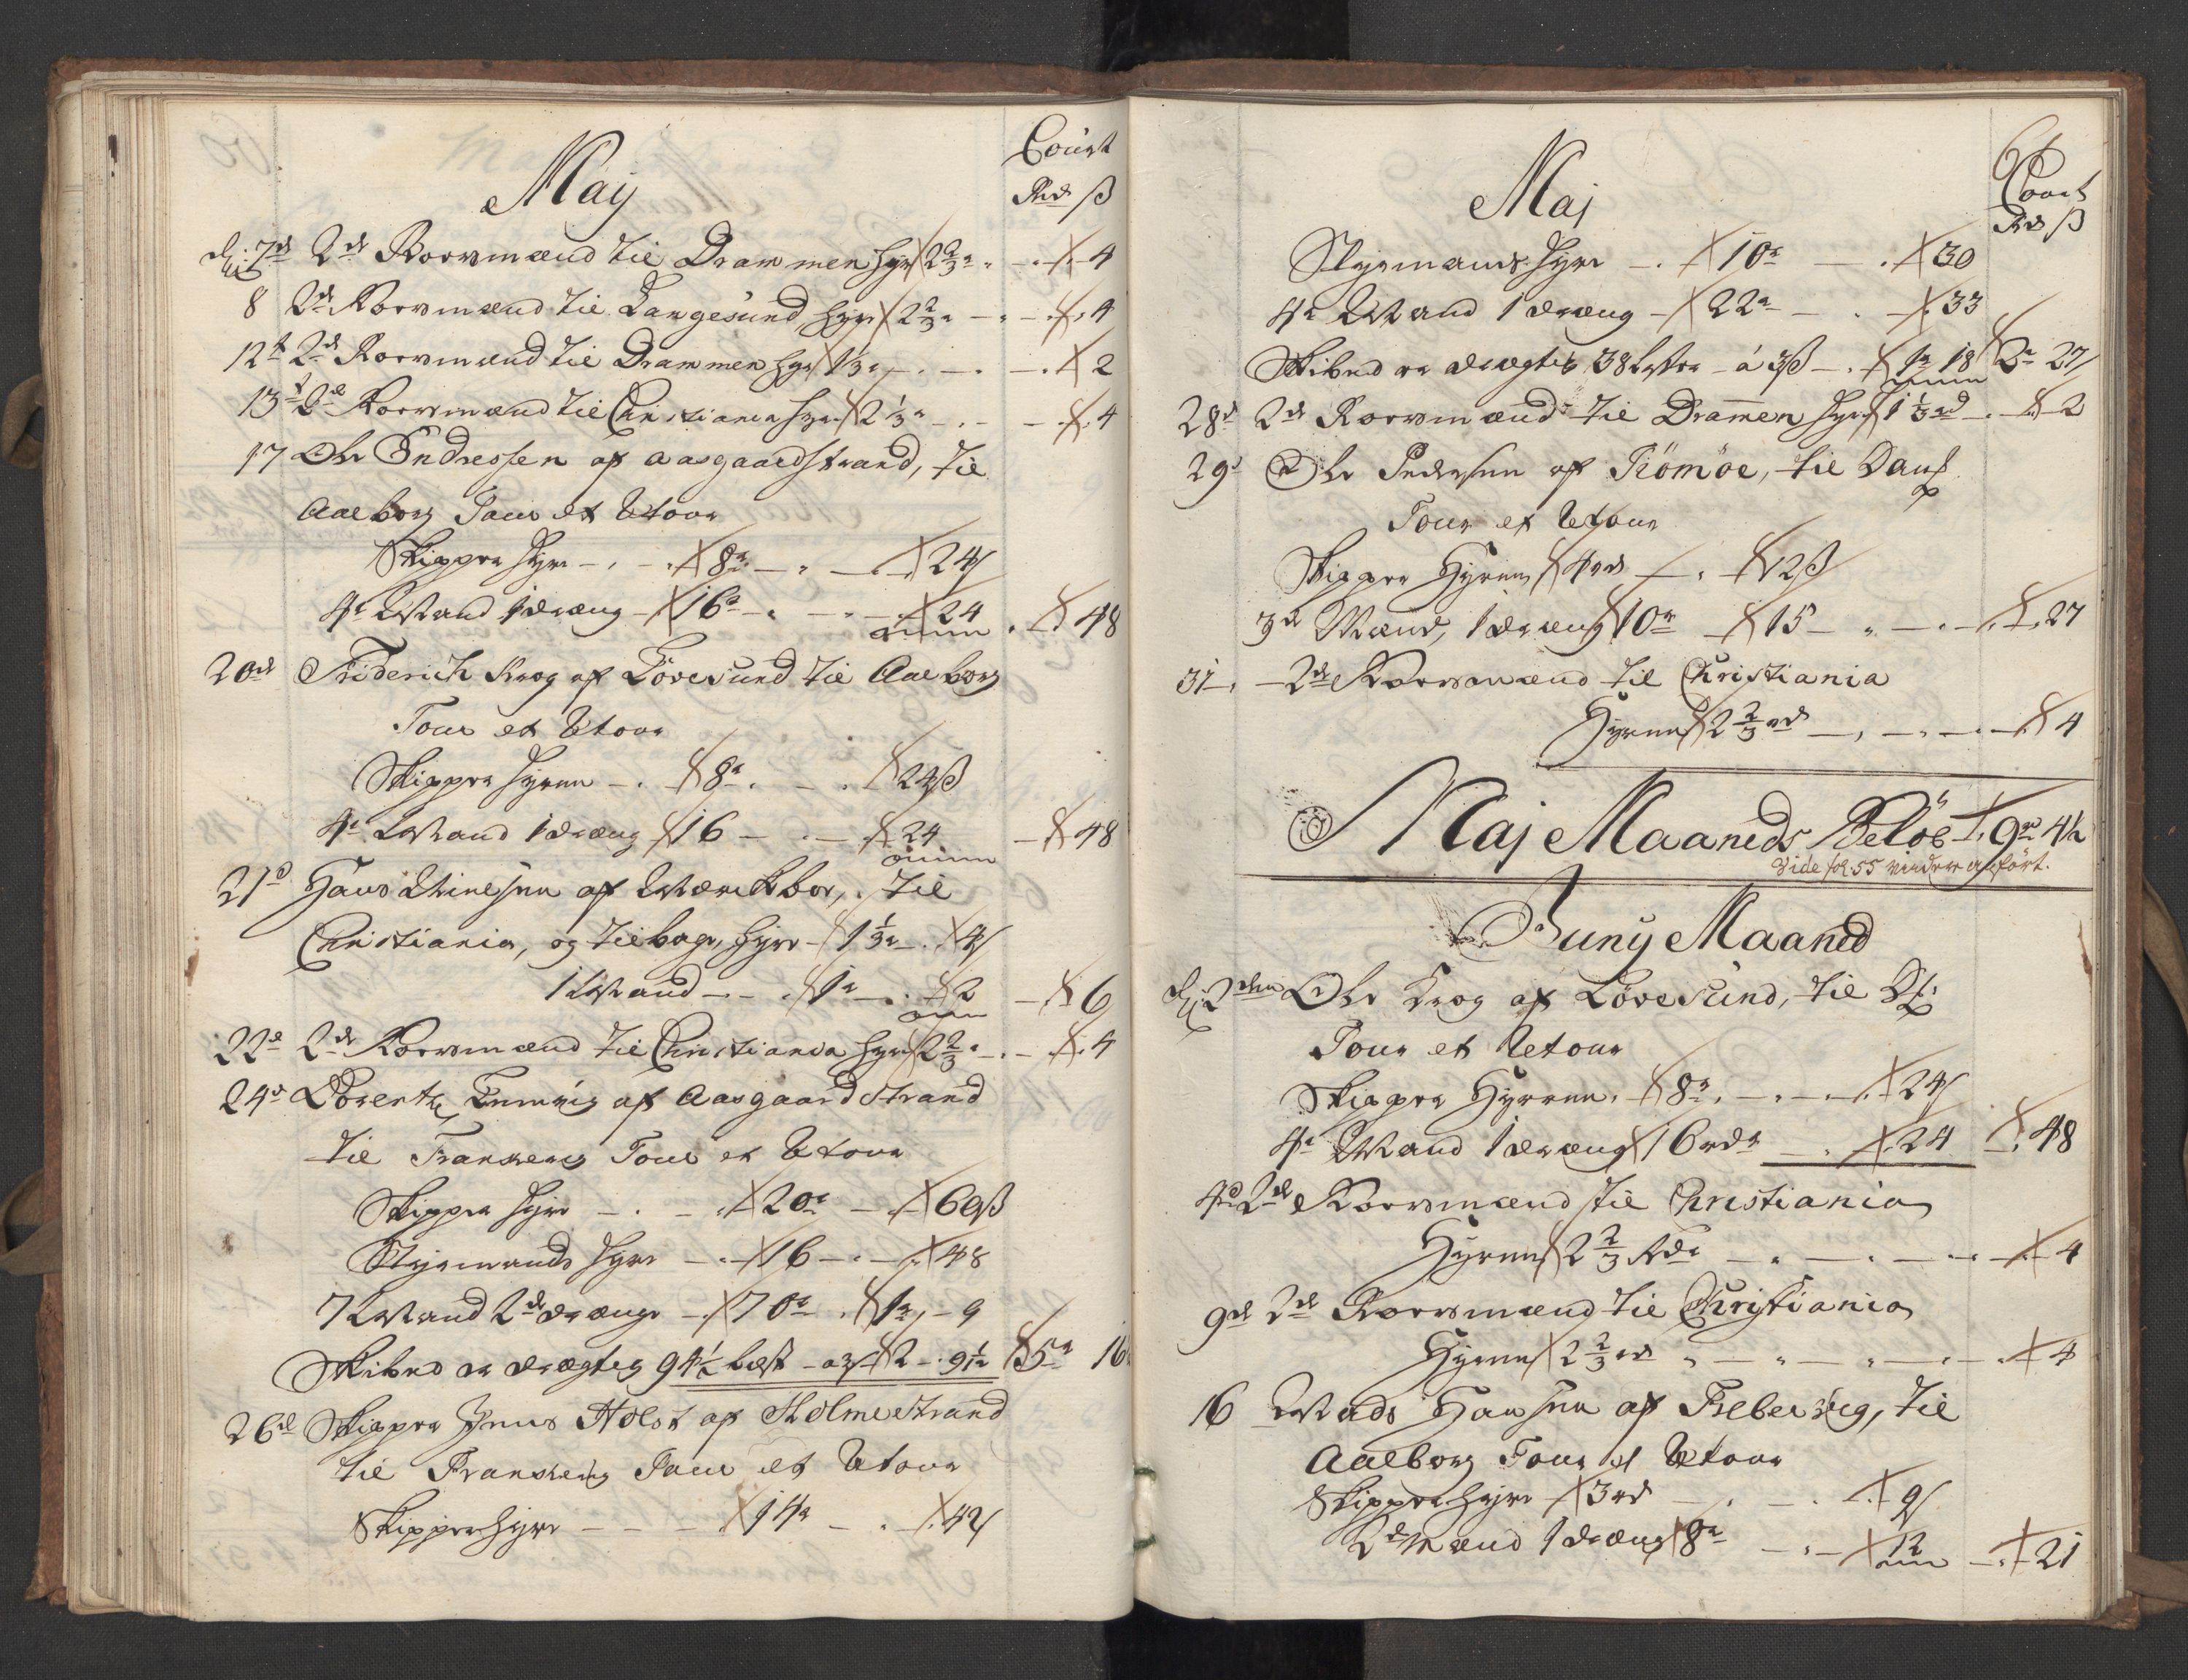 Maij
Court
Rd ß
d: 7de 2de Roersmænd til Drammen hyr 2 2/3 r 4
8 2de Roersmænd til Langesund hyr 2 2/3 r 4
12t 2de Roersmænd til Drammen hyr 1 1/3 r 2
13t 2de Roersmænd til Christiania hyr 2 1/3 r 4
17 Ole Endressen af Aasgaardstrand, til
Aalborg Tour et Retour
Skipper hyre 8r 24ß
4r Mand 1 dræng 16r 24 48
20de Friderich Krog af Lövesund til Aalborg
Tour et Retour
Skipper hyren 8r 24ß
4r Mand 1 dræng 16 24 48
21d Hans til
Christiania, og tilbage, hyre 1 1/3 r 4ß
1 Mand 1r 2 6
22d 2de Roersmænd til Christiania hyr 2 2/3 r 4
24d Lorentz af Aasgaardstrand
til Tour et Retour
Skipper hyre 20r 60ß
Styrmands hyre 16 48
7 Mand 2de drænge 70r 1r 9
Skibet er drægtig 94 1/2 læst a 3ß 2 9 1/2 5r 16
26de Skipper Jens Holst af Holmestrand
til Tour et Retour
Skipper hyre 14r 42ß
61
Maj
Court
Rd ß
Styrmands hyre 10r 30
4r Mand 1 dræng 22r 33
Skibet er drægtig 38 læster á 3ß 1r 18 2r 27
28d 2de Roersmænd til Dramen hyr 1 1/3 rd 2
29d Ole Pedersen af Römöe, til
Tour et Retour
Skipper Hyren 4rd 12ß
3de Mand, 1 dræng 10r 15 27
31 2de Roersmænd til Christiania
Hyren 2 2/3 rd 4
Maj Maaneds Belöb 9r 41
Vide fol. 55 anfört.
Juny Maaned
d: 2den Ole Krog af Lövesund, til
Tour et Retour
Skipper Hyren 8r 24ß
4r Mand 1 dræng 16rdr 24 48
4d 2de Roersmænd til Christiania
Hyren 2 2/3 Rdr 4
9de 2de Roersmænd til Christiania
Hyren 2 2/3 rd 4
16 Mads Hansen af til
Aalborg Tour et Retour
Skipper hyre 3rd 9ß
2de Mand 1 dræng 8r 12 21